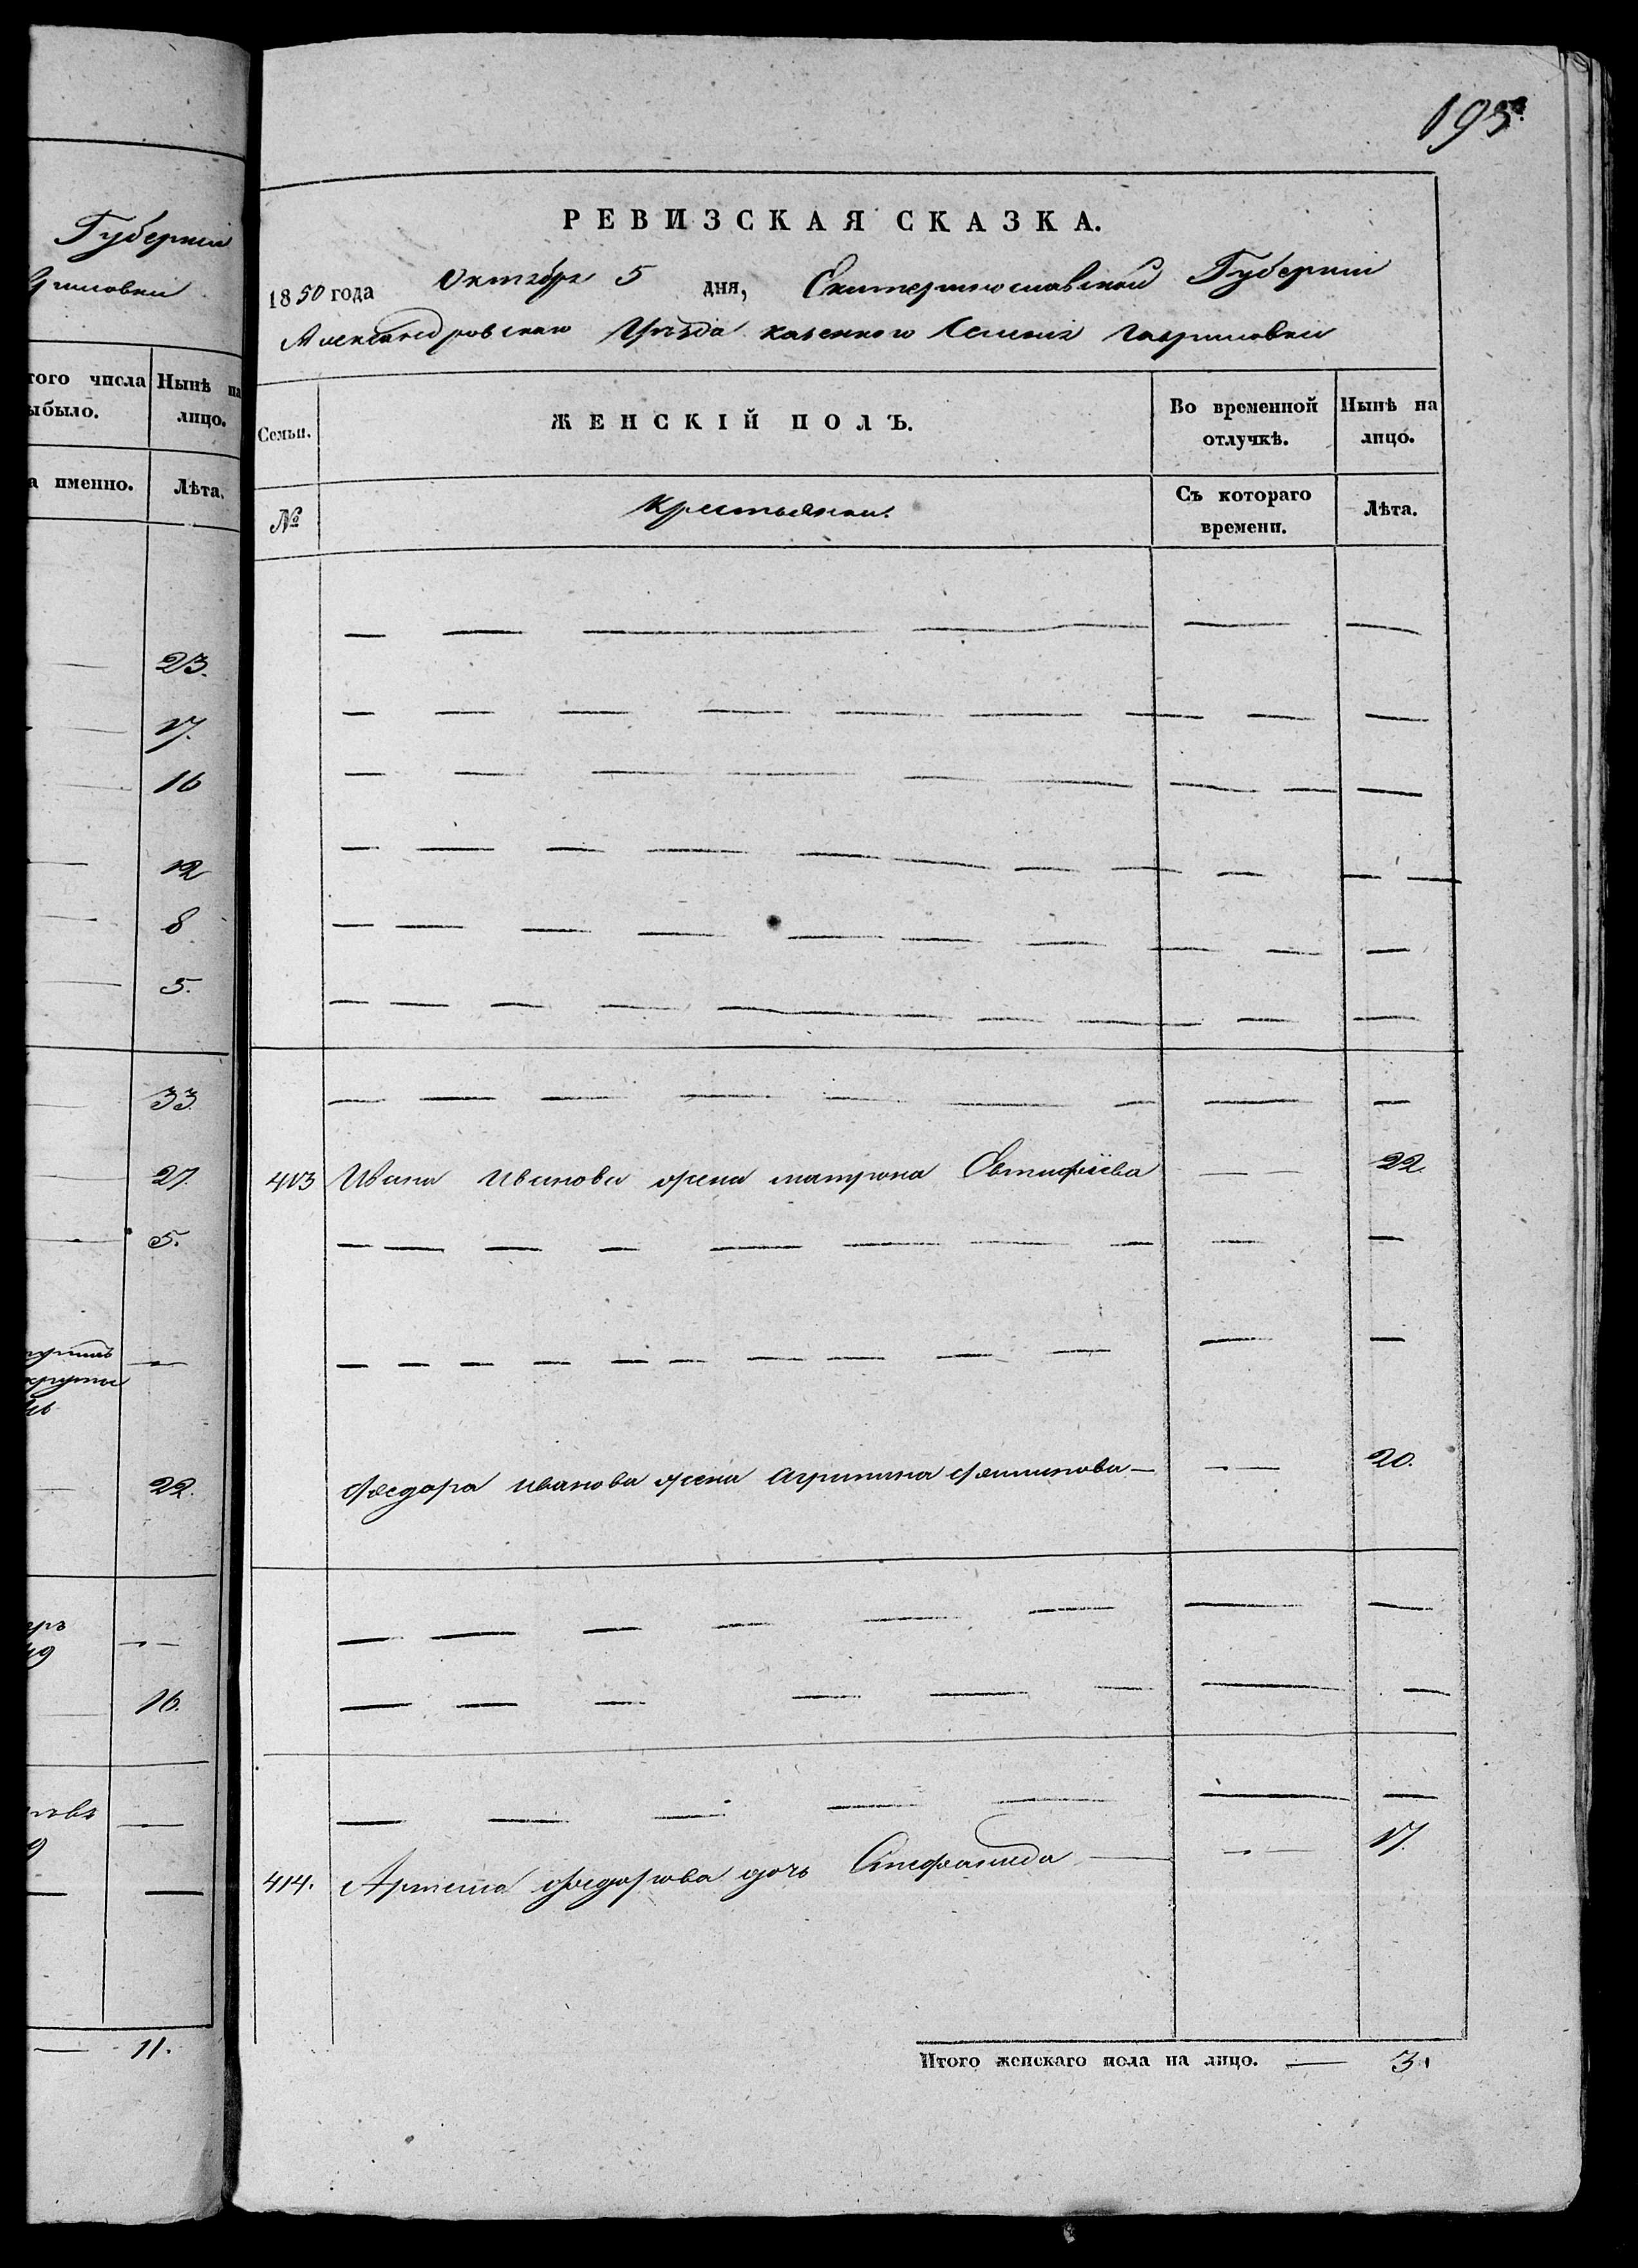 Губерніи
того числа
Нынѣ на
ыбыло.
лицо.
а именно.
Лѣта.
23.
17.
16
12
8
5.
33
27.
5.
22.
16.
11.
195
РЕВИЗСКАЯ СКАЗКА.
1850 года Октября 5 дня, Екатеринославской Губерніи
Александровскаго Уѣзда казеннаго Селенія Гавриловки
Семьи.
ЖЕНСКІЙ ПОЛЪ.
Во временной
отлучкѣ.
Нынѣ на
лицо.
№
Крестьянки.
Съ котораго
времени.
Лѣта.
413 Ивана Иванова жена Матрона Евтифіева 22.
Федора Иванова жена Агрипина 20.
414. Артема Федорова дочь Стефанида 17.
Итого женскаго пола на лицо. — 3.